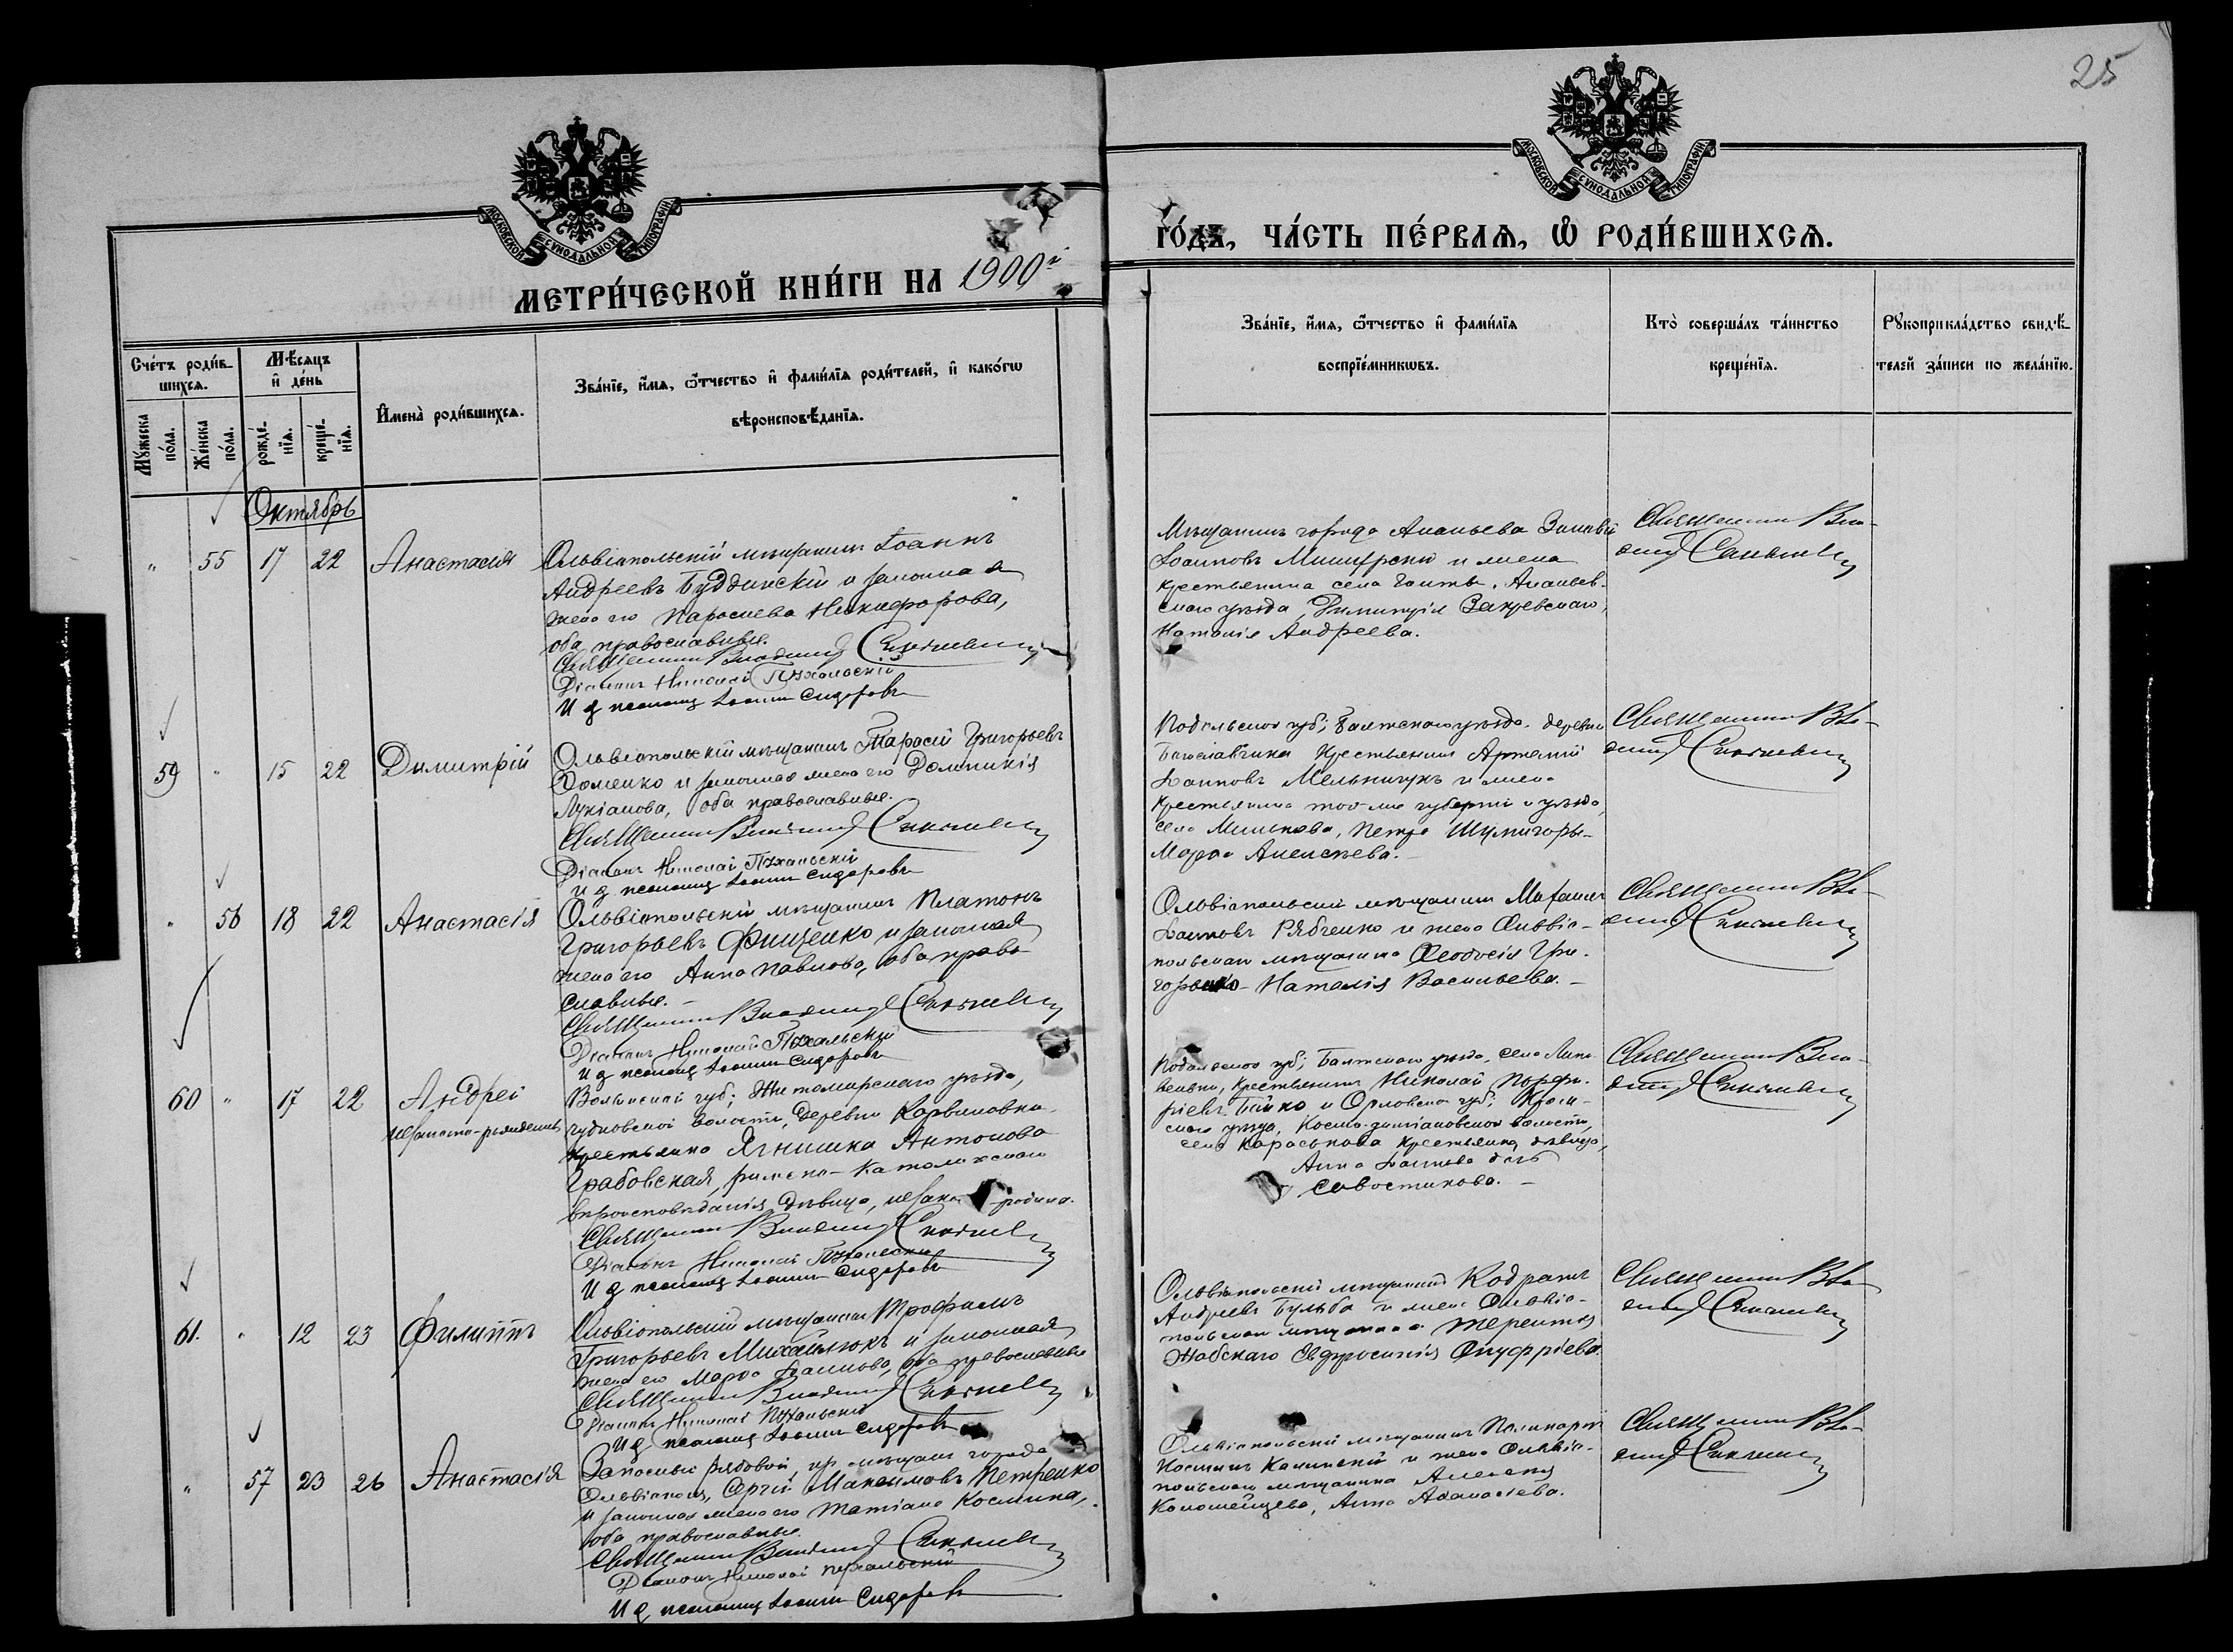 25
МОСКОВСКОЙ СѴНОДАЛЬНОЙ ТИПОГРАФІИ
МОСКОВСКОЙ СѴНОДАЛЬНОЙ ТИПОГРАФІИ
МЕТРИ́ЧЕСКОЙ КНИ́ГИ НА 1900й
ГО́ДЪ, ЧА́СТЬ ПЕ́РВАѦ, Ѡ РОДИ́ВШИХСѦ.
Сче́тъ роди́в-
шихсѧ.
Мꙋ́жеска по́ла.
Же́нска по́ла.
Мѣ́сяцъ
и҆ де́нь
рожде́-
нїѧ.
креще́-
нїѧ.
И҆мена̀ роди́вшихсѧ.
Зва́нїе, и҆́мѧ, ѻ҆́тчество и҆ фамі́лїѧ роди́телей, и҆ како́гѡ
вѣроисповѣ́данїѧ.
Зва́нїе, и҆́мѧ, ѻ҆́тчество и҆ фамі́лїѧ
воспрїе́мникѡвъ.
Кто̀ соверша́лъ та́инство
креще́нїѧ.
Рꙋкоприкла́дство свидѣ́-
телей за́писи по жела́нїю.
Октябрь
" 55 17 22 Анастасія
Ольвіопольскій мѣщанинъ Іоаннъ
Андреевъ Буддинскій и законная
жена его Параскева Никифорова,
оба православные.
Священникъ Владимір
Діаконъ Николай Пухальскій
И д псаломщ Іоаннъ Сидоровъ
Мѣщанинъ города Ананьева
Іоанновъ и жена
крестьянина села Гонты, Ананьев-
скаго уѣзда, Димитрія Закревскаго,
Наталія Андреева.
Священникъ Вла-
димір
59 " 15 22 Димитрій
Ольвіопольскій мѣщанинъ Тарасій Григорьевъ
Доменко и законная жена его Домникія
Лукіанова, оба православные.
Священникъ Владимір
Діаконъ Николай Пухальскій
и д псаломщ Іоаннъ Сидоровъ
Подольской губ; Балтскаго уѣзда деревни
крестьянинъ Артемій
Іоанновъ Мельничукъ и жена
крестьянина той-же губерніи и уѣзда,
села Петра
Марѳа Алексѣева.
Священникъ Вла-
димір
" 56 18 22 Анастасія
Ольвіопольскій мѣщанинъ Платонъ
Григорьевъ Фищенко и законная
жена его Анна Павлова, оба право-
славные.
Священникъ Владимір
Діаконъ Николай Пухальскій
и д псаломщ Іоаннъ Сидоровъ
Ольвіопольскій мѣщанинъ
Іоанновъ Рябченко и жена Ольвіо-
польскаго мѣщанина Ѳеодосія Гри-
Наталія Васильева.
Священникъ Вла-
димір
60 " 17 22 Андрей
незаконно-рожденный
Волынской губ; Житомирскаго уѣзда,
Чудновской волости, деревни Карвиновки
крестьянка Ягнишка Антонова
Грабовская, римско-католическаго
вѣроисповѣданія, дѣвица, родила.
Священникъ Владимір
Діаконъ Николай Пухальскій
И д псаломщ Іоаннъ Сидоровъ
Подольской губ; Балтскаго уѣзда, села
крестьянинъ Николай Порфи-
ріевъ Бойко и Орловской губ; Кром-
скаго уѣзда, Космо-демьяновской волости,
села крестьянка, дѣвица,
Анна Іоаннова дочь
Савостикова.
Священникъ Вла-
димір
61. " 12 23 Филиппъ
Ольвіопольскій мѣщанинъ Трофимъ
Григорьевъ Михайлюкъ и законная
жена его Марѳа Іоаннова, оба православные
Священникъ Владимір
Діаконъ Николай Пухальскій
И д псаломщ Іоаннъ Сидоровъ
Ольвіопольскій мѣщанинъ Кодратъ
Андреевъ Бульба и жена Ольвіо-
польскаго мѣщанина Терентія
Жабскаго Евфросинія Онуфріева.
Священникъ Вла-
димір
" 57 23 26 Анастасія
Запасный рядовой, изъ мѣщанъ города
Ольвіополя, Сергій Максимовъ Петренко
и законная жена его Татіана Космина,
оба православные.
Священникъ Владимір
Діаконъ Николай Пухальскій
И д псаломщ Іоаннъ Сидоровъ
Ольвіопольскій мѣщанинъ Поликарпъ
Косминъ Калинскій и жена Ольвіо-
польскаго мѣщанина Алексѣя
Анна Аѳанасіева.
Священникъ Вла-
димір